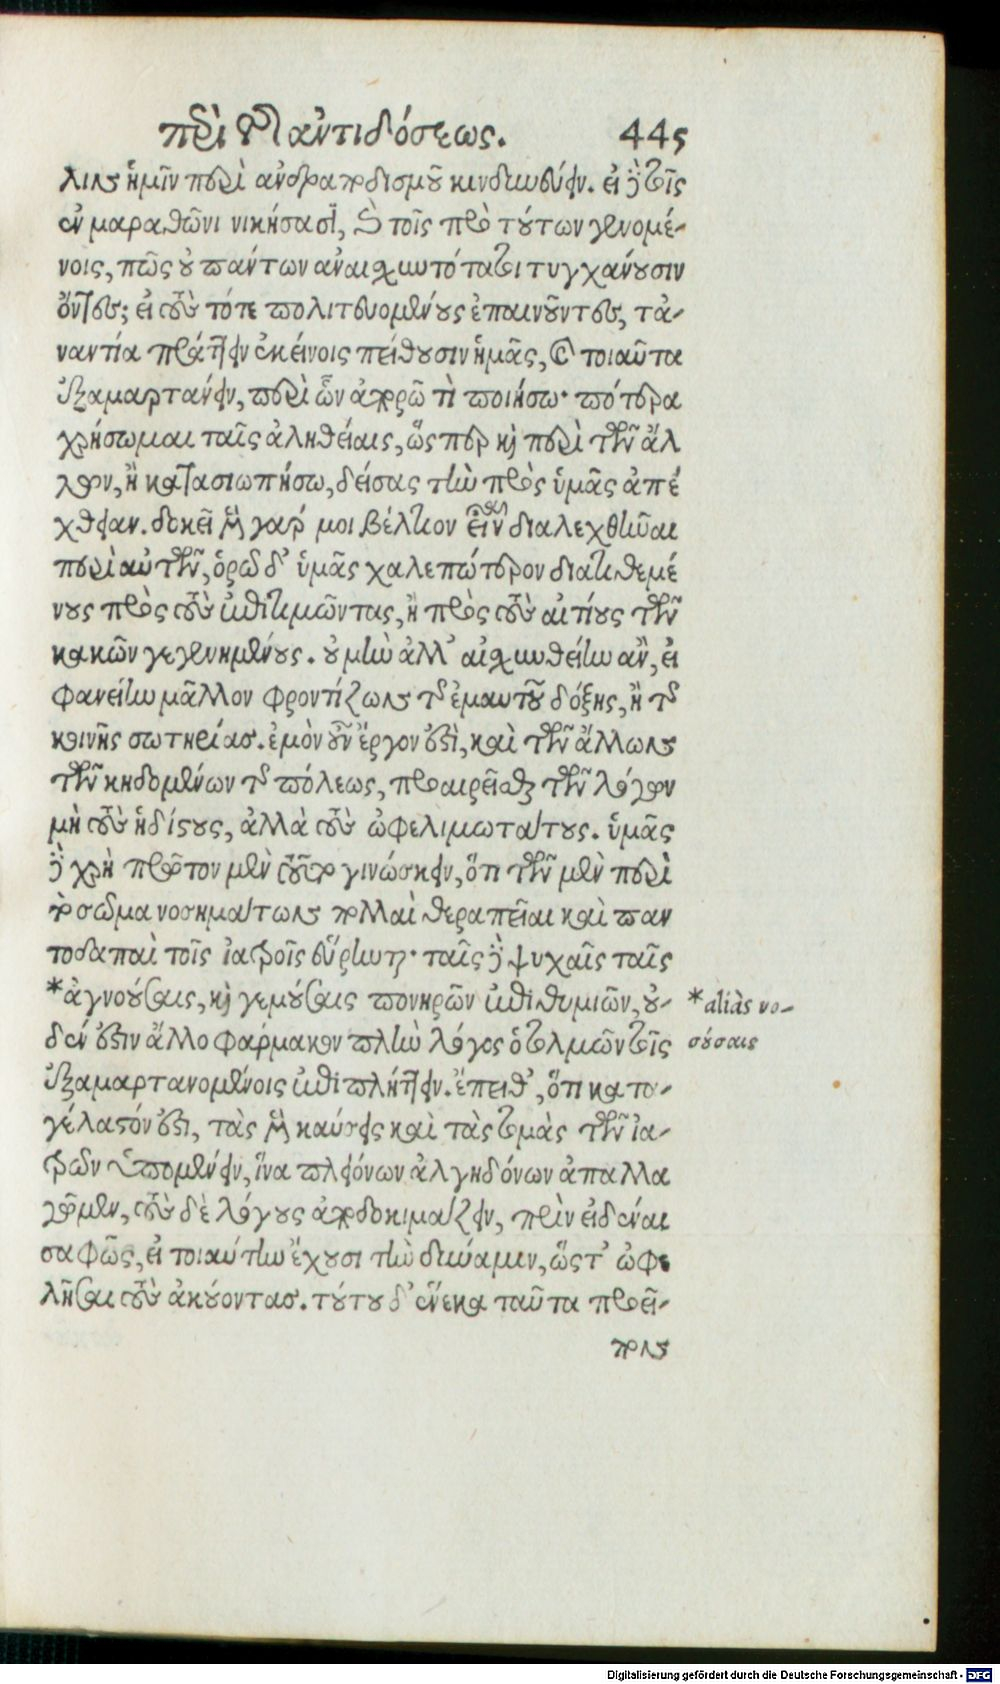 περὶ τῆς ἀντιδόσεως. 445
λιν ἡμῖν περὶ ἀνδραποδισμοῦ κινδυνεύειν. εἰ δὲ τοῖς
ἐν μαραθῶνι νικήσασι, καὶ τοῖς πρὸ τούτων γενομέ-
νοις, πῶς οὐ πάντων ἀναισχυντότατοι τυγχάνουσιν
ὄντες; εἰ τοὺς τότε πολιτευομένους ἐπαινοῦντες, τἀ-
ναντία πράττειν ἐκείνοις πείθουσιν ἡμᾶς, καὶ τοιαῦτα
ἐξαμαρτάνειν, περὶ ὧν ἀπορῶ τὶ ποιήσω· πότερα
χρήσωμαι ταῖς ἀληθείαις, ὥσπερ καὶ περὶ τῶν ἄλ
λων, ἢ κατασιωπήσω, δείσας τὴν πρὸς ὑμᾶς ἀπέ
χθειαν. δοκεῖ μὲν γάρ μοι βέλτιον εἶναι διαλεχθῆναι
περὶ αὐτῶν, ὁρῶ δ' ὑμᾶς χαλεπώτερον διατιθεμέ
νους πρὸς τοὺς ἐπιτιμῶντας, ἢ πρὸς τοὺς αἰτίους τῶν
κακῶν γεγενημένους. οὐ μὴν ἀλλ' αἰσχυνθείην ἂν, εἰ
φανείην μᾶλλον φροντίζων τῆς ἐμαυτοῦ δόξης, ἢ τῆς
κοινῆς σωτηρίας. ἐμὸν οὖν ἔργον ἐστὶ, καὶ τῶν ἄλλων
τῶν κηδομένων τῆς πόλεως, προαιρεῖσθαι τῶν λόγων
μὴ τοὺς ἡδίστους, ἀλλὰ τοὺς ὠφελιμωτάτους. ὑμᾶς
δὲ χρὴ πρῶτον μὲν τοῦτο γινώσκειν, ὅτι τῶν μὲν περὶ
τὸ σῶμα νοσημάτων πολλαὶ θεραπεῖαι καὶ παν
τοδαπαὶ τοῖς ἰατροῖς εὕρηνται· ταῖς δὲ ψυχαῖς ταῖς
*ἀγνούσαις, καὶ γεμούσαις πονηρῶν ἐπιθυμιῶν, οὐ-
δέν ἐστιν ἄλλο φάρμακον πλὴν λόγος ὁ τολμῶν τοῖς
ἐξαμαρτανομένοις ἐπιπλήττειν. ἔπειθ', ὅτι κατα-
γέλαστόν ἐστι, τὰς μὲν καύσεις καὶ τὰς τομὰς τῶν ἰα-
τρῶν ὑπομένειν, ἵνα πλειόνων ἀλγηδόνων ἀπαλλα
γῶμεν, τοὺς δὲ λόγους ἀποδοκιμάζειν, πρὶν εἰδέναι
σαφῶς, εἰ τοιαύτην ἔχουσι τὴν δύναμιν, ὥστ' ὠφε
λῆσαι τοὺς ἀκούοντας. τούτου δ' ἕνεκα ταῦτα προεῖ-
πον
*aliàs νο-
σούσαις
Digitalisierung gefördert durch die Deutsche Forschungsgemeinschaft - DFG